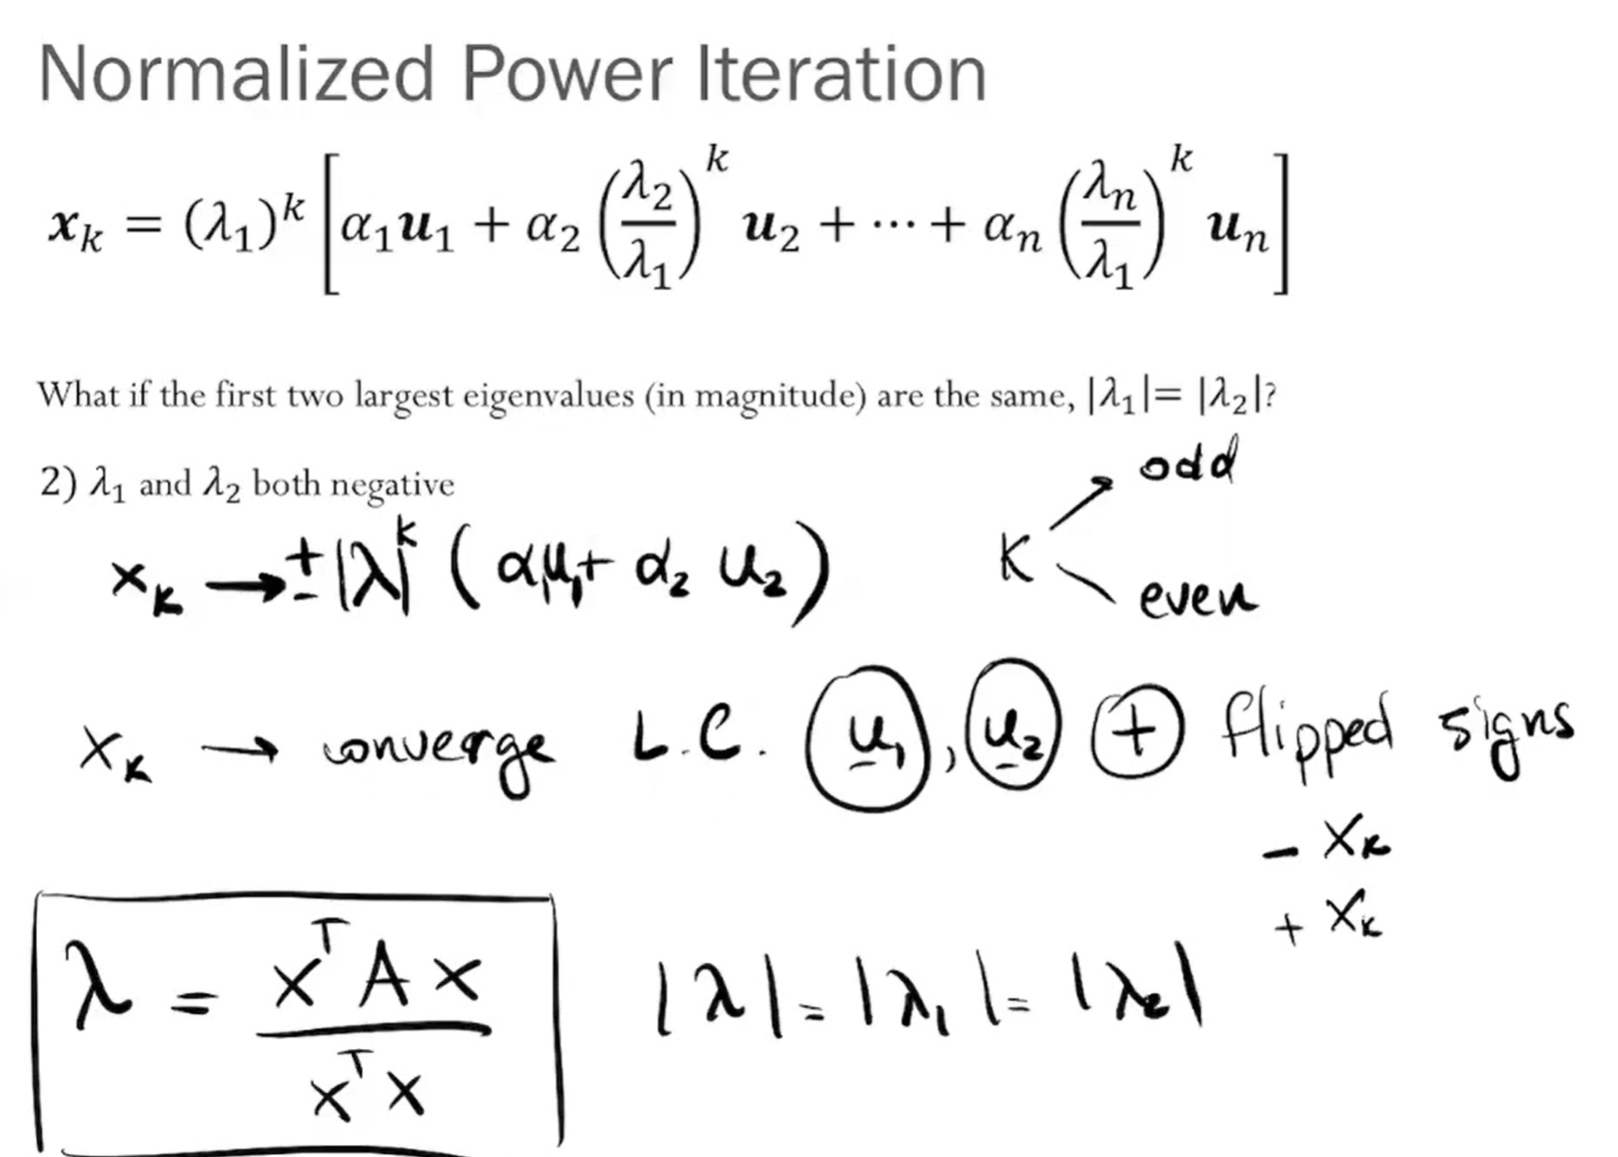 Normalized Power Iteration
𝒙ₖ = (λ₁)ᵏ [α₁𝒖₁ + α₂ (λ₂/λ₁)ᵏ 𝒖₂ + ⋯ + αₙ (λₙ/λ₁)ᵏ 𝒖ₙ]
What if the first two largest eigenvalues (in magnitude) are the same, |λ₁|= |λ₂|?
2) λ₁ and λ₂ both negative
xₖ → ±|λ|ᵏ (α₁u₁+ α₂ u₂)
K
odd
even
xₖ → converge L.C. u₁, u₂ + flipped signs
− xₖ
+ xₖ
λ = xᵀAx / xᵀx
|λ| = |λ₁| = |λ₂|